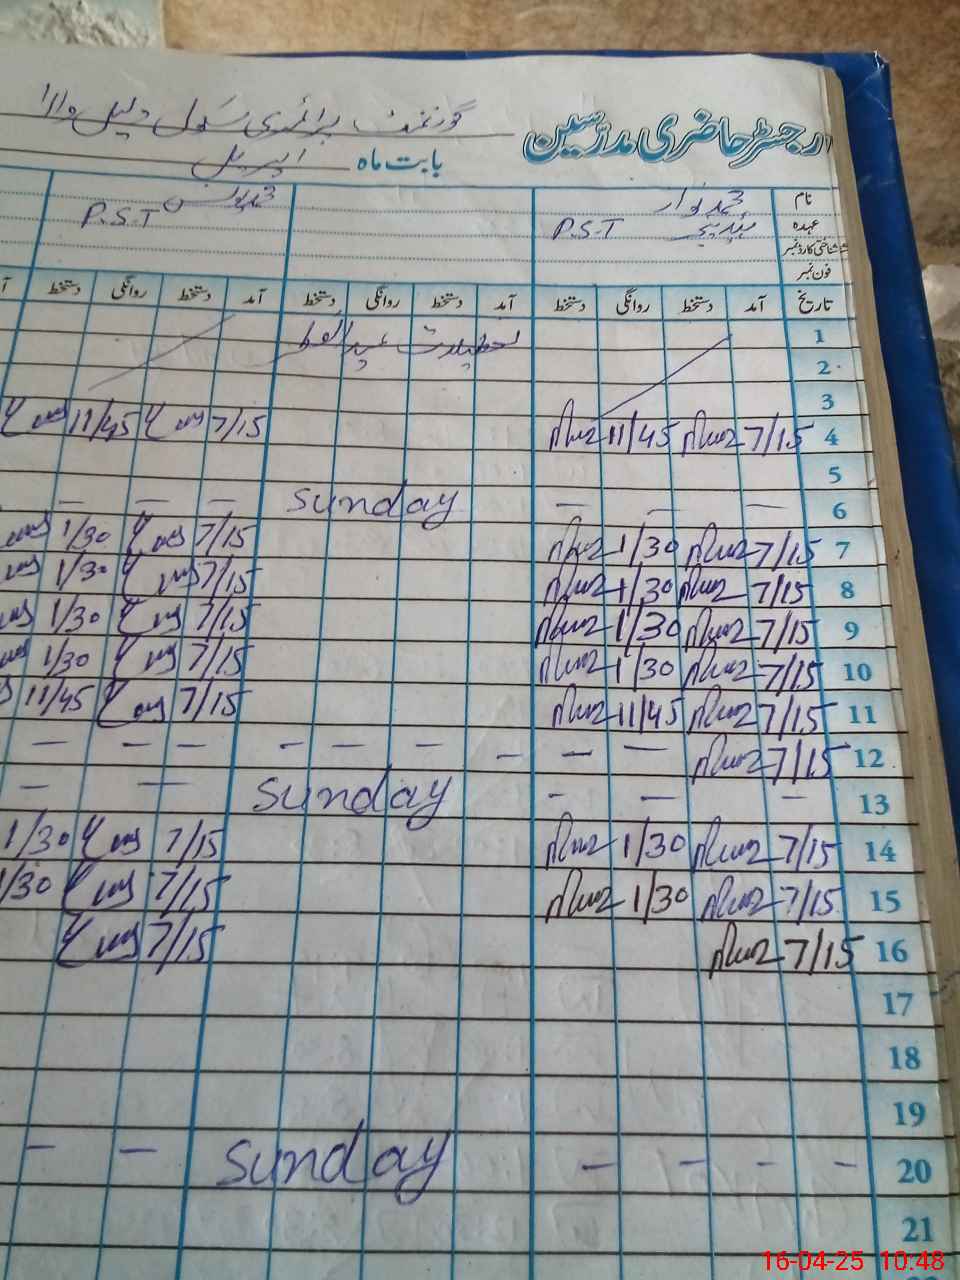 رجسٹر حاضری مدرسین
گورنمنٹ پرائمری سکول دلیل والا
بابت ماہ اپریل
نام محمد نواز
عہدہ P.S.T P.S.T
شناختی کارڈ نمبر
فون نمبر
تاریخ آمد دستخط روانگی دستخط آمد دستخط روانگی دستخط آمد دستخط روانگی دستخط
1 تعطیلات عید الفطر
2
3
4 7/15 11/45 7/15 11/45
5
6 — — — sunday — — —
7 7/15 1/30 7/15 1/30
8 7/15 1/30 7/15 1/30
9 7/15 1/30 7/15 1/30
10 7/15 1/30 7/15 1/30
11 7/15 11/45 7/15 11/45
12 7/15 — — — — — — — — —
13 — — — sunday — —
14 7/15 1/30 7/15 1/30
15 7/15 1/30 7/15 1/30
16 7/15 7/15
17
18
19
20 — — — — sunday — —
21
16-04-25 10:48